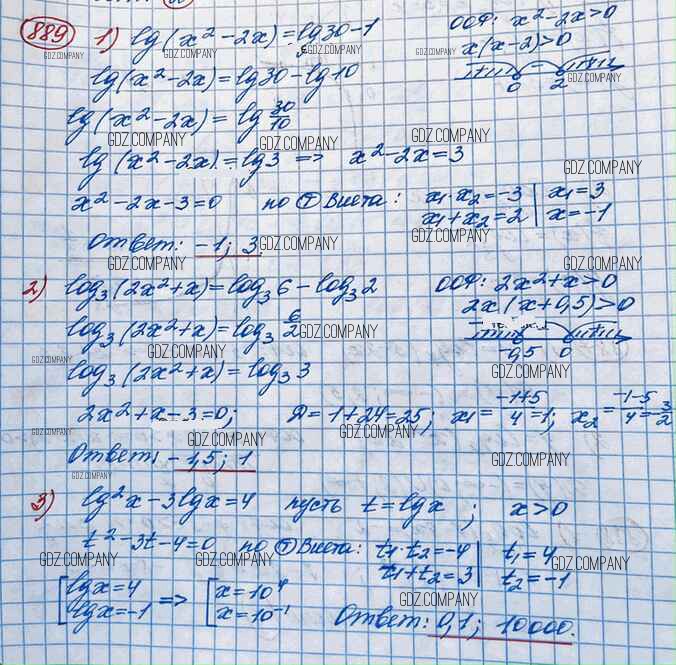 889
1) lg(x²-2x)=lg30-1   ООФ: x²-2x>0
x(x-2)>0
lg(x²-2x)=lg30-lg10
0   2
lg(x²-2x)=lg 30/10
lg(x²-2x)=lg3 => x²-2x=3
x²-2x-3=0   по Т Виета: x₁·x₂=-3 | x₁=3
x₁+x₂=2 | x=-1
Ответ: -1; 3
2) log₃(2x²+x)=log₃6-log₃2   ООФ: 2x²+x>0
2x(x+0,5)>0
log₃(2x²+x)=log₃ 6/2
-0,5   0
log₃(2x²+x)=log₃3
2x²+x-3=0; Д=1+24=25; x₁=(-1+5)/4=1; x₂=(-1-5)/4=-3/2
Ответ: -1,5; 1
3) lg²x-3lgx=4   пусть t=lgx; x>0
t²-3t-4=0   по Т Виета: t₁·t₂=-4 | t₁=4
t₁+t₂=3 | t₂=-1
[lgx=4   => [x=10⁴
lgx=-1   x=10⁻¹
Ответ: 0,1; 10000.
GDZ.COMPANY